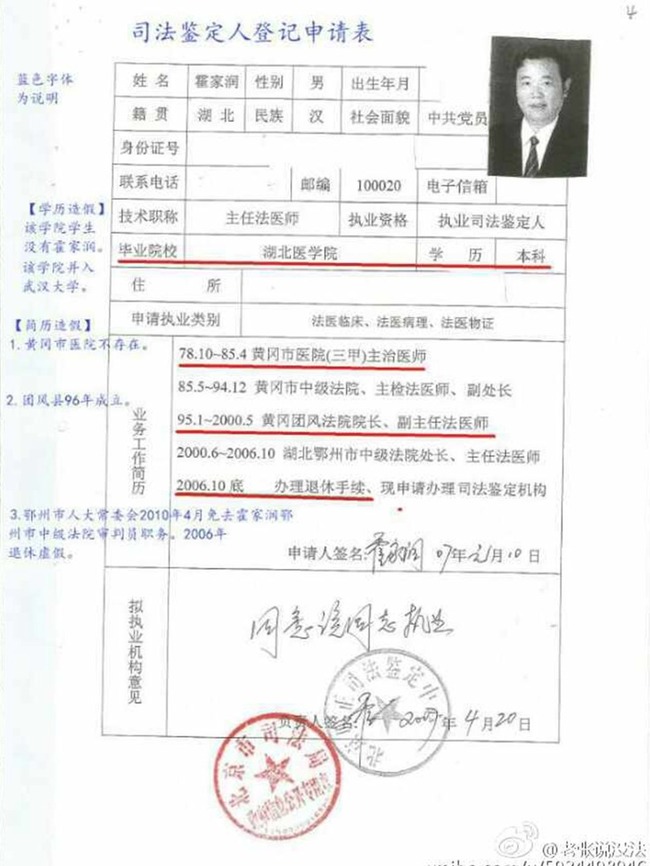 4
司法鉴定人登记申请表
蓝色字体
为说明
姓 名 霍家润 性别 男 出生年月
籍 贯 湖 北 民族 汉 社会面貌 中共党员
身份证号
联系电话 邮编 100020 电子信箱
技术职称 主任法医师 执业资格 执业司法鉴定人
【学历造假】
该学院学生
没有霍家润。
该学院并入
武汉大学。
毕业院校 湖北医学院 学 历 本科
住 所
申请执业类别 法医临床、法医病理、法医物证
【简历造假】
1.黄冈市医院不存在。
2.团风县96年成立。
3.鄂州市人大常委会2010年4月免去霍家润鄂
州市中级法院审判员职务。2006年
退休虚假。
业务工作简历
78.10~85.4 黄冈市医院(三甲)主治医师
85.5~94.12 黄冈市中级法院、主检法医师、副处长
95.1~2000.5 黄冈团风法院院长、副主任法医师
2000.6~2006.10 湖北鄂州市中级法院处长、主任法医师
2006.10底 办理退休手续、现申请办理司法鉴定机构
申请人签名:霍家润 07年元月10日
拟执业机构意见
同意该同志执业
负责人签名: 2007年4月20日
司法鉴定中
北京市司法局
@老张说没法